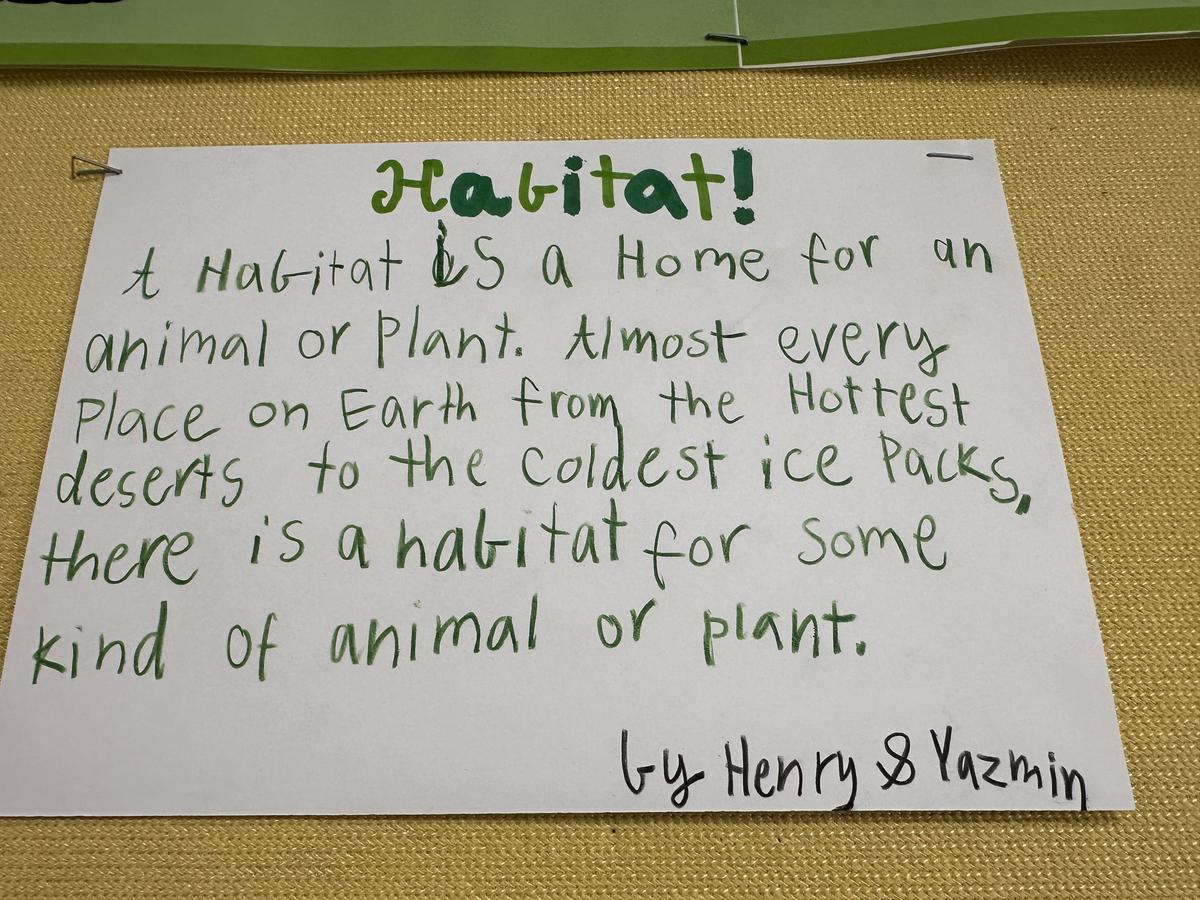 Habitat!
A Habitat is a Home for an
animal or Plant. Almost every
Place on Earth from the Hottest
deserts to the coldest ice Packs,
there is a habitat for some
kind of animal or plant.
by Henry & Yazmin